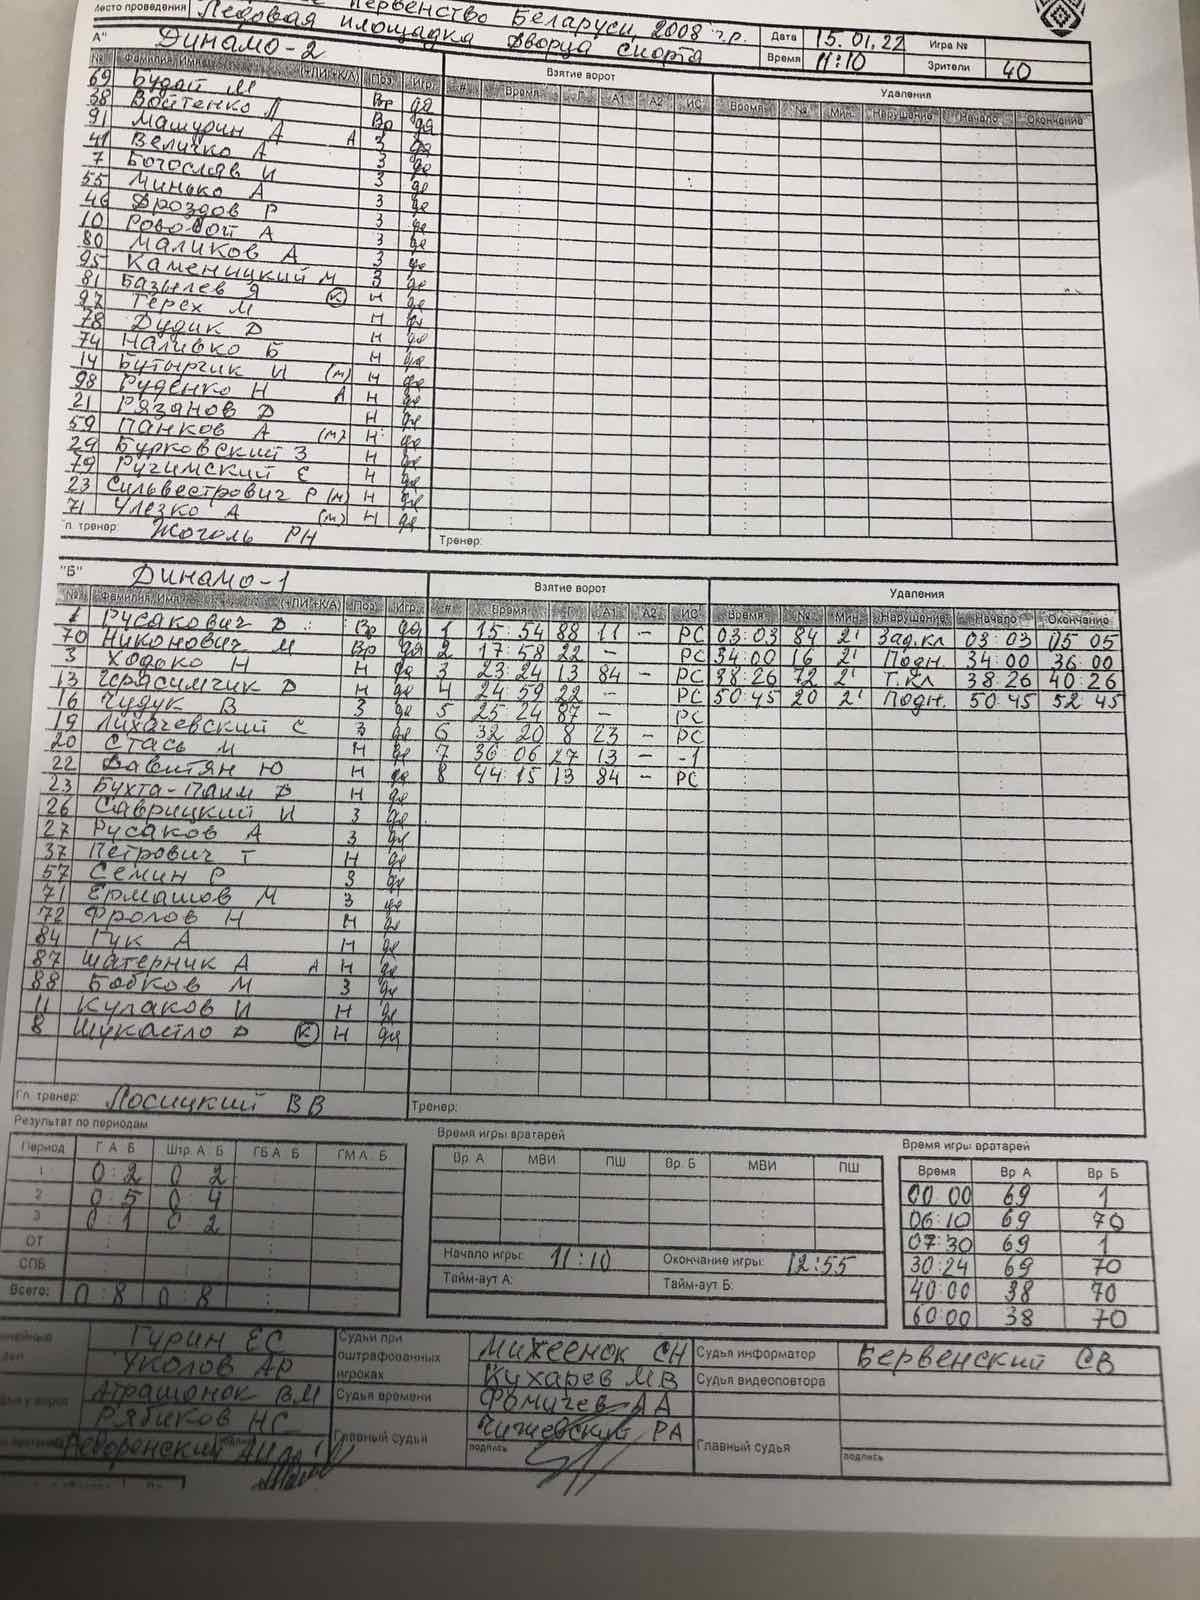 первенство Беларуси, 2008 г.р. Дата 15.01.22 Игра №
Место проведения Ледовая площадка Дворца спорта Время 11:10 Зрители 40
"А" Динамо-2 Взятие ворот Удаления
№ Фамилия, Имя (+/ЛИ +К/А) Поз. Игр. # Время Г А1 А2 ИС Время № Мин. Нарушение Начало Окончание
69 Будай М Вр да
38 Войтенко П Вр да
91 Машурин А А З да
41 Величко А З да
7 Богослав И З да
55 Минько А З да
46 Дроздов Р З да
10 Рововой А З да
80 Маликов А З да
95 Каменицкий М З да
81 Базылев Я (К) Н да
97 Терех М Н да
78 Дудик Д Н да
74 Наливко Б Н да
14 Бутырчик И (м) Н да
98 Руденко Н А Н да
21 Рязанов Д Н да
59 Панков А (м) Н да
29 Бурковский З Н да
79 Ручимский Е Н да
23 Сильвестрович Р (м) Н да
71 Улезко А (м) Н да
Гл. тренер: Жоголь РН Тренер:
"Б" Динамо-1 Взятие ворот Удаления
№ Фамилия, Имя (+/ЛИ +К/А) Поз. Игр. # Время Г А1 А2 ИС Время № Мин. Нарушение Начало Окончание
1 Русакович Д Вр да 1 15:54 88 11 – РС 03:03 84 2' Зад.кл 03:03 05:05
70 Никонович М Вр да 2 17:58 22 – РС 34:00 16 2' Подн. 34:00 36:00
3 Ходько Н Н да 3 23:24 13 84 – РС 38:26 72 2' Т.кл 38:26 40:26
13 Герасимчик Д Н да 4 24:59 22 – РС 50:45 20 2' Подн. 50:45 52:45
16 Чудук В З да 5 25:24 87 – РС
19 Лихачевский С З да 6 32:20 8 23 – РС
20 Стась М Н да 7 36:06 27 13 – -1
22 Давитян Ю Н да 8 44:15 13 84 – РС
23 Бухта-Паим Д Н да
26 Саврицкий И З да
27 Русаков А З да
37 Петрович Т Н да
57 Семин Р З да
71 Ермашов М З да
72 Фролов Н Н да
84 Гук А Н да
87 Шатерник А А Н да
88 Бобков М З да
11 Кулаков И Н да
8 Шукайло Д (К) Н да
Гл. тренер: Лосицкий ВВ Тренер:
Результат по периодам Время игры вратарей Время игры вратарей
Период Г А . Б Штр. А . Б ГБ А . Б ГМ А . Б Вр. А МВИ ПШ Вр. Б МВИ ПШ Время Вр. А Вр. Б
1 0:2 0:2 00:00 69 1
2 0:5 0:4 06:10 69 70
3 0:1 0:2 07:30 69 1
ОТ Начало игры: 11:10 Окончание игры: 12:55 30:24 69 70
СПБ Тайм-аут А: Тайм-аут Б: 40:00 38 70
Всего: 0:8 0:8 60:00 38 70
Гурин ЕС Судьи при оштрафованных игроках Михеенок СН Судья информатор Бервенский СВ
Уколов АР Кухарев МВ Судья видеоповтора
Атрашонок ВМ Судья времени Фомичев АА
Рябиков НС Главный судья Чигиевский РА Главный судья
подпись подпись подпись